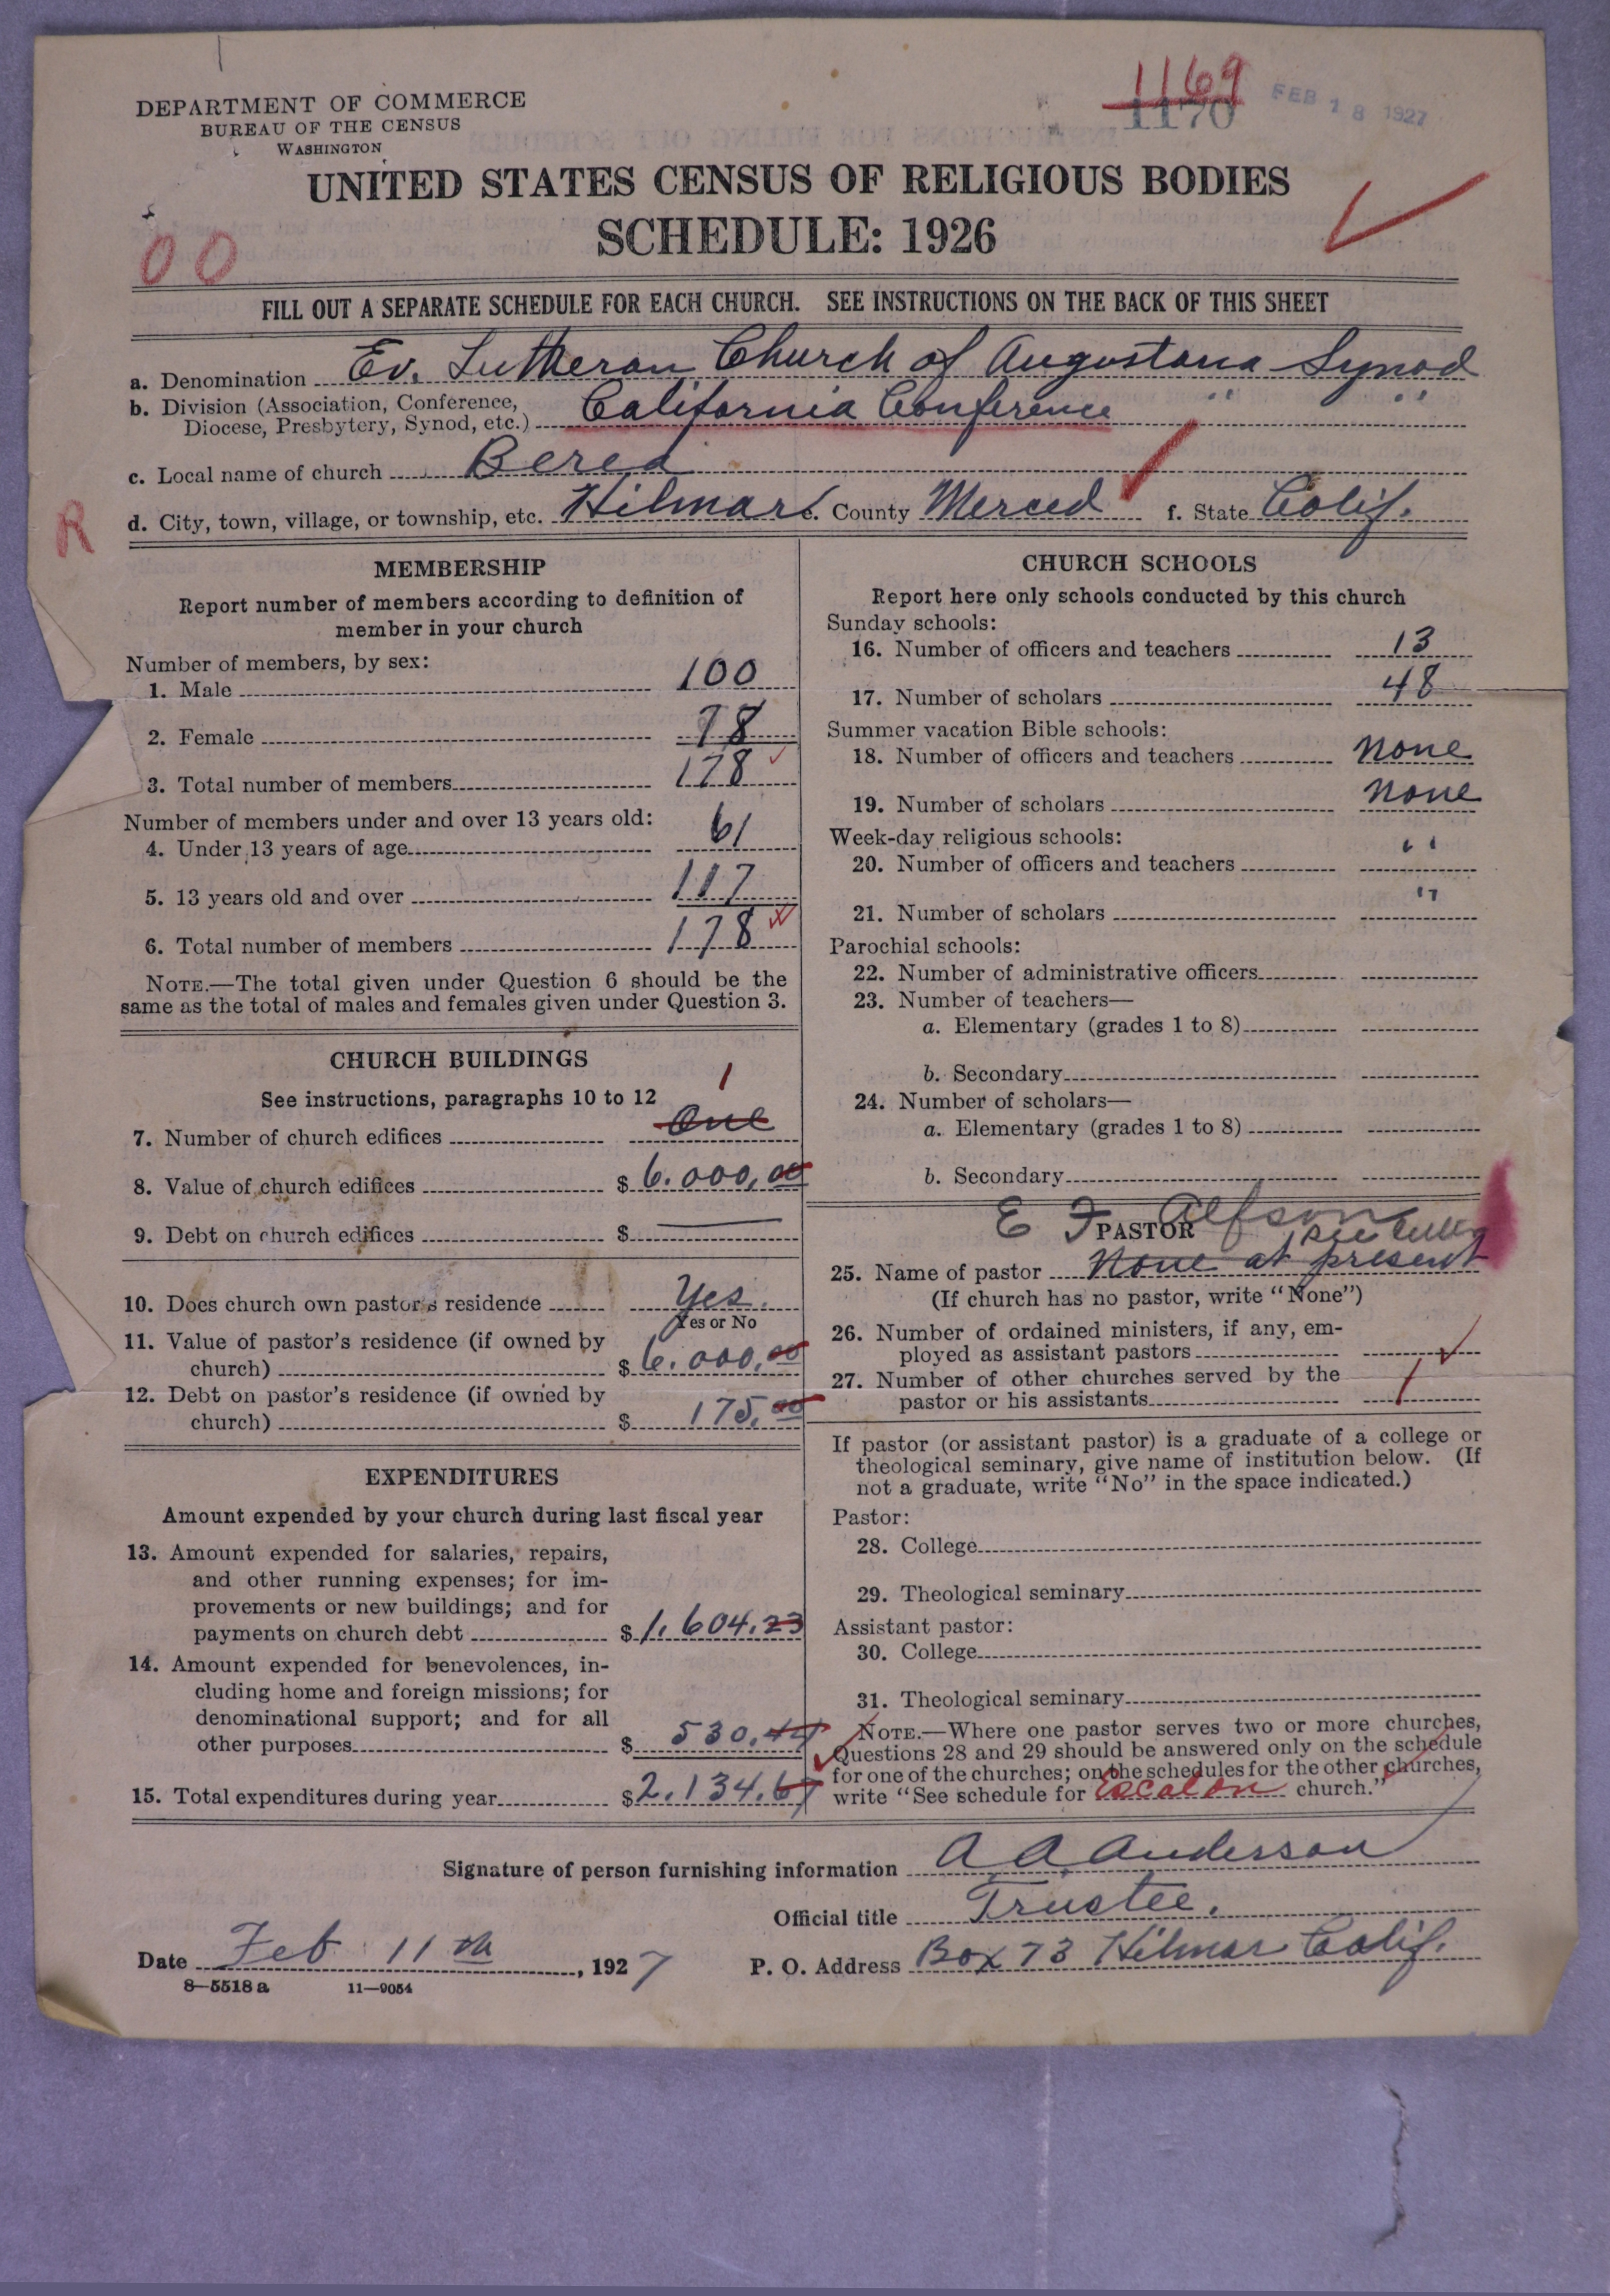 1169
1170
FEB 18 1927
DEPARTMENT OF COMMERCE
BUREAU OF THE CENSUS
WASHINGTON
UNITED STATES CENSUS OF RELIGIOUS BODIES
SCHEDULE: 1926
00
FILL OUT A SEPARATE SCHEDULE FOR EACH CHURCH. SEE INSTRUCTIONS ON THE BACK OF THIS SHEET
a. Denomination Ev. Lutheran Church of Augustana Synod
b. Division (Association, Conference, Diocese, Presbytery, Synod, etc.) California Conference " "
c. Local name of church Berea
R
d. City, town, village, or township, etc. Hilmar e. County Merced f. State Calif.
MEMBERSHIP
Report number of members according to definition of
member in your church
Number of members, by sex:
1. Male 100
2. Female 78
3. Total number of members 178
Number of members under and over 13 years old:
4. Under 13 years of age 61
5. 13 years old and over 117
6. Total number of members 178
NOTE.—The total given under Question 6 should be the
same as the total of males and females given under Question 3.
CHURCH BUILDINGS
See instructions, paragraphs 10 to 12
1
7. Number of church edifices One
8. Value of church edifices $ 6.000,00
9. Debt on church edifices $ —
10. Does church own pastor's residence Yes.
Yes or No
11. Value of pastor's residence (if owned by
church) $ 6.000,00
12. Debt on pastor's residence (if owned by
church) $ 175.00
EXPENDITURES
Amount expended by your church during last fiscal year
13. Amount expended for salaries, repairs,
and other running expenses; for im-
provements or new buildings; and for
payments on church debt $ 1.604.23
14. Amount expended for benevolences, in-
cluding home and foreign missions; for
denominational support; and for all
other purposes $ 530.44
15. Total expenditures during year $ 2.134.67
CHURCH SCHOOLS
Report here only schools conducted by this church
Sunday schools:
16. Number of officers and teachers 13
17. Number of scholars 48
Summer vacation Bible schools:
18. Number of officers and teachers none
19. Number of scholars none
Week-day religious schools:
20. Number of officers and teachers "
21. Number of scholars "
Parochial schools:
22. Number of administrative officers
23. Number of teachers—
a. Elementary (grades 1 to 8)
b. Secondary
24. Number of scholars—
a. Elementary (grades 1 to 8)
b. Secondary
E F Alfson
PASTOR
25. Name of pastor None at present
(If church has no pastor, write "None")
26. Number of ordained ministers, if any, em-
ployed as assistant pastors
27. Number of other churches served by the
pastor or his assistants 1
If pastor (or assistant pastor) is a graduate of a college or
theological seminary, give name of institution below. (If
not a graduate, write "No" in the space indicated.)
Pastor:
28. College
29. Theological seminary
Assistant pastor:
30. College
31. Theological seminary
NOTE.—Where one pastor serves two or more churches,
Questions 28 and 29 should be answered only on the schedule
for one of the churches; on the schedules for the other churches,
write "See schedule for Escalon church."
Signature of person furnishing information A A Anderson
Official title Trustee.
Date Feb 11th, 1927 P. O. Address Box 73 Hilmar Calif.
8—5518 a 11—9054